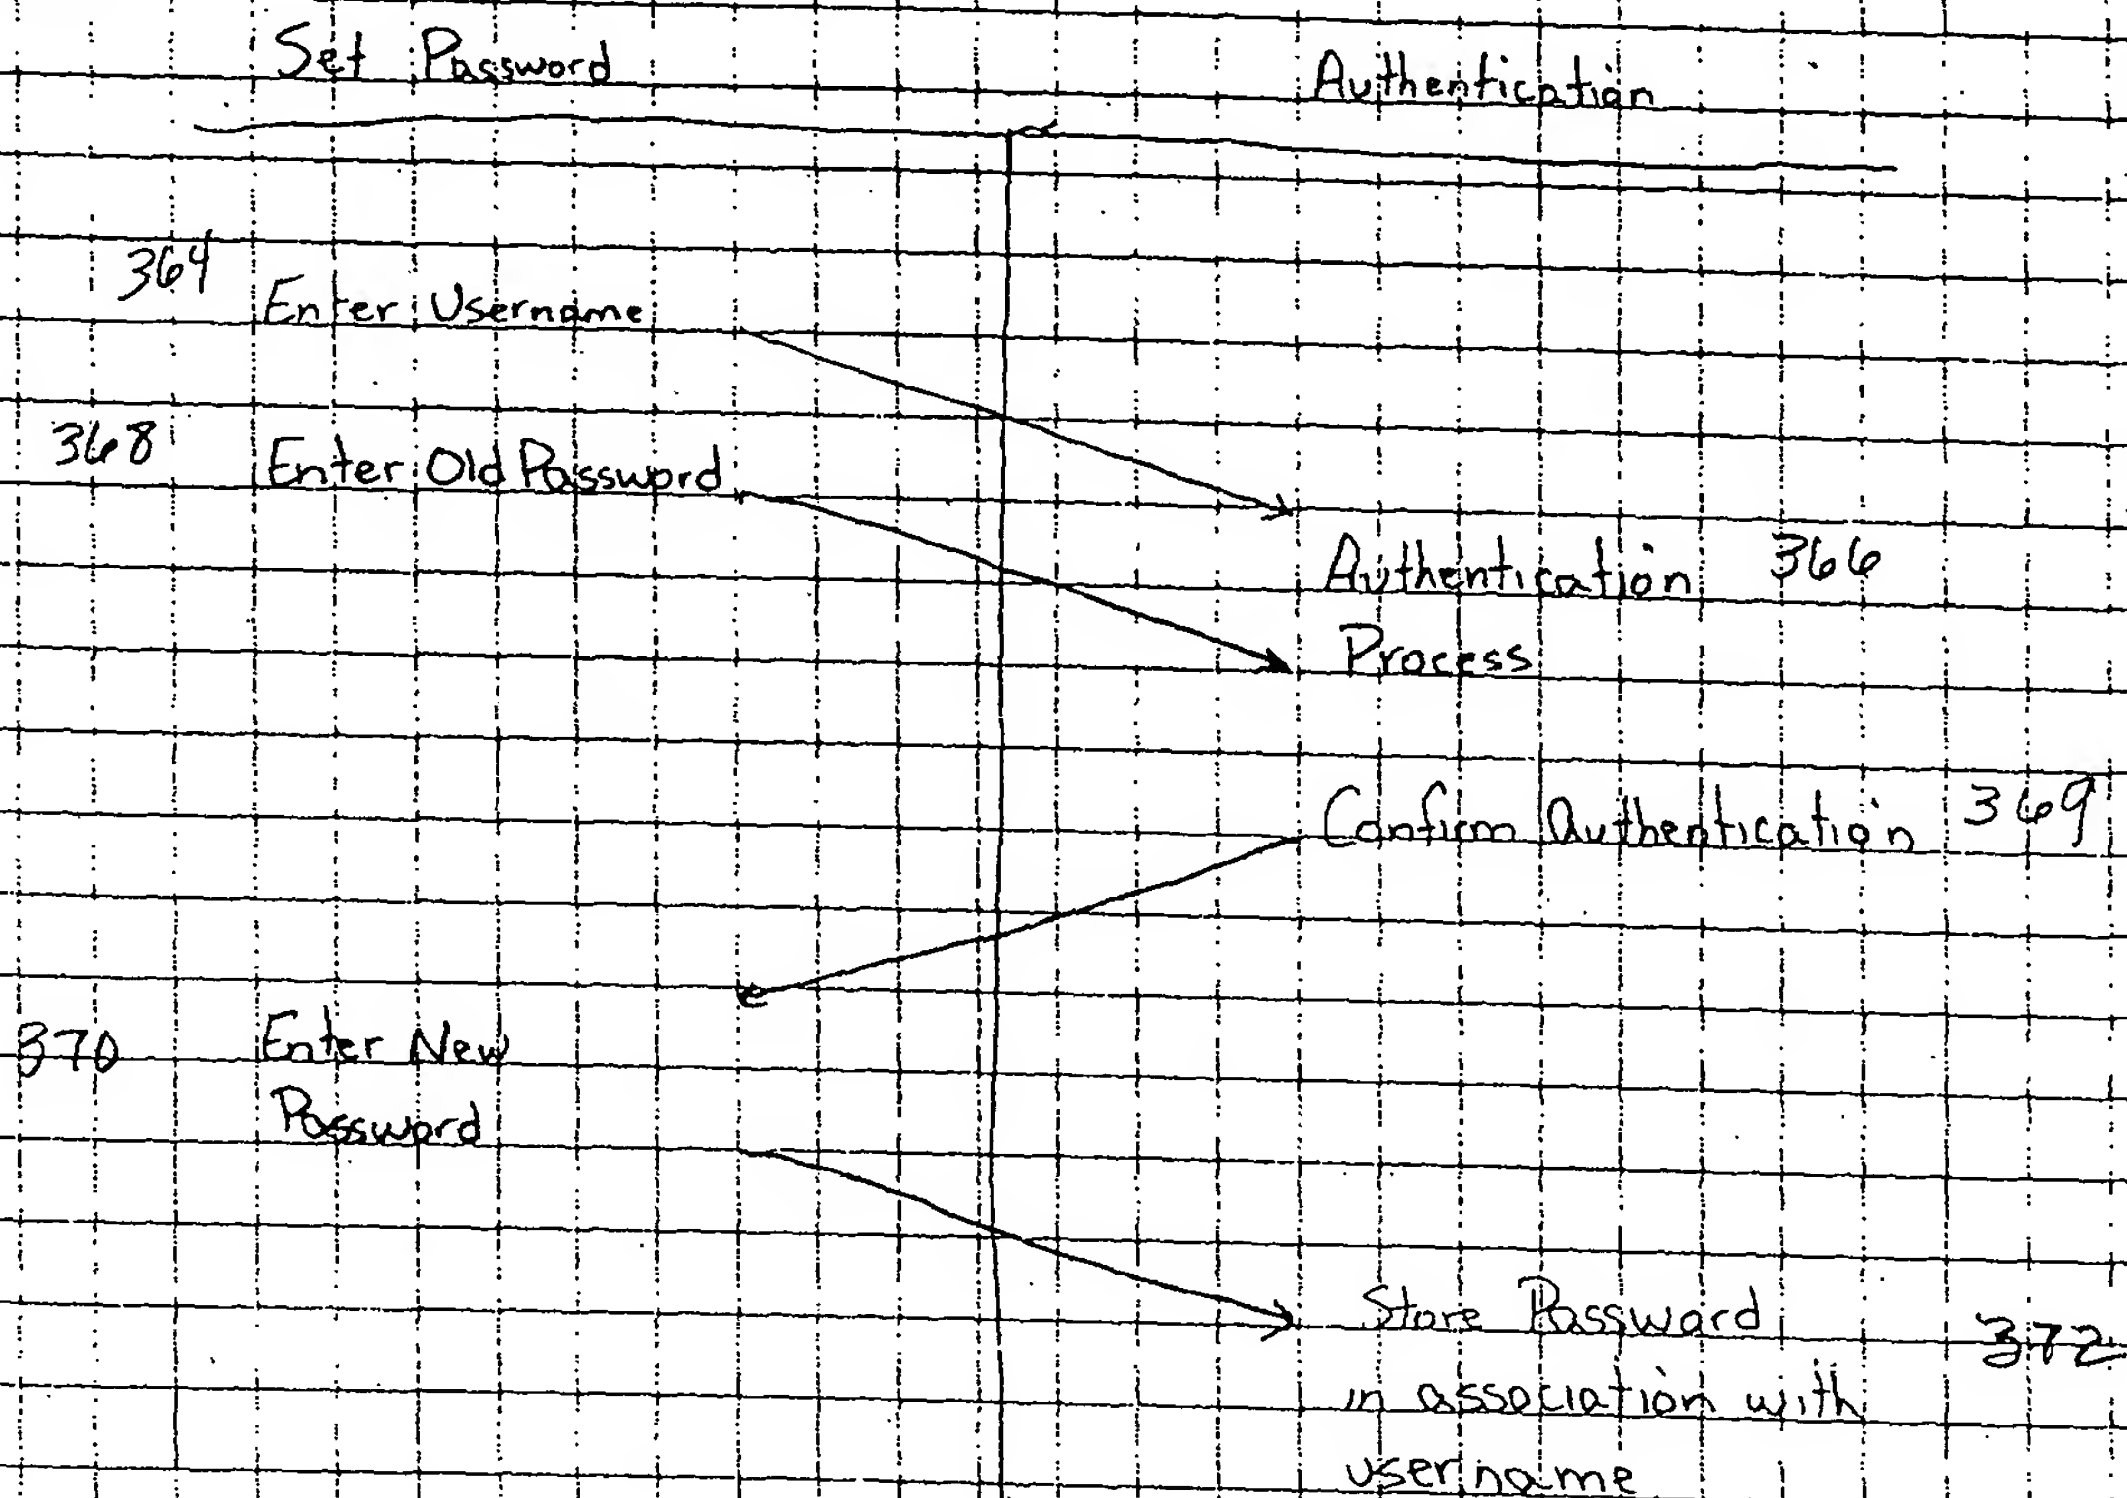 Set Password
Authentication
364 Enter Username
368 Enter Old Password
Authentication 366
Process
Confirm Authentication 369
370 Enter New
Password
Store Password
372
in association with
username